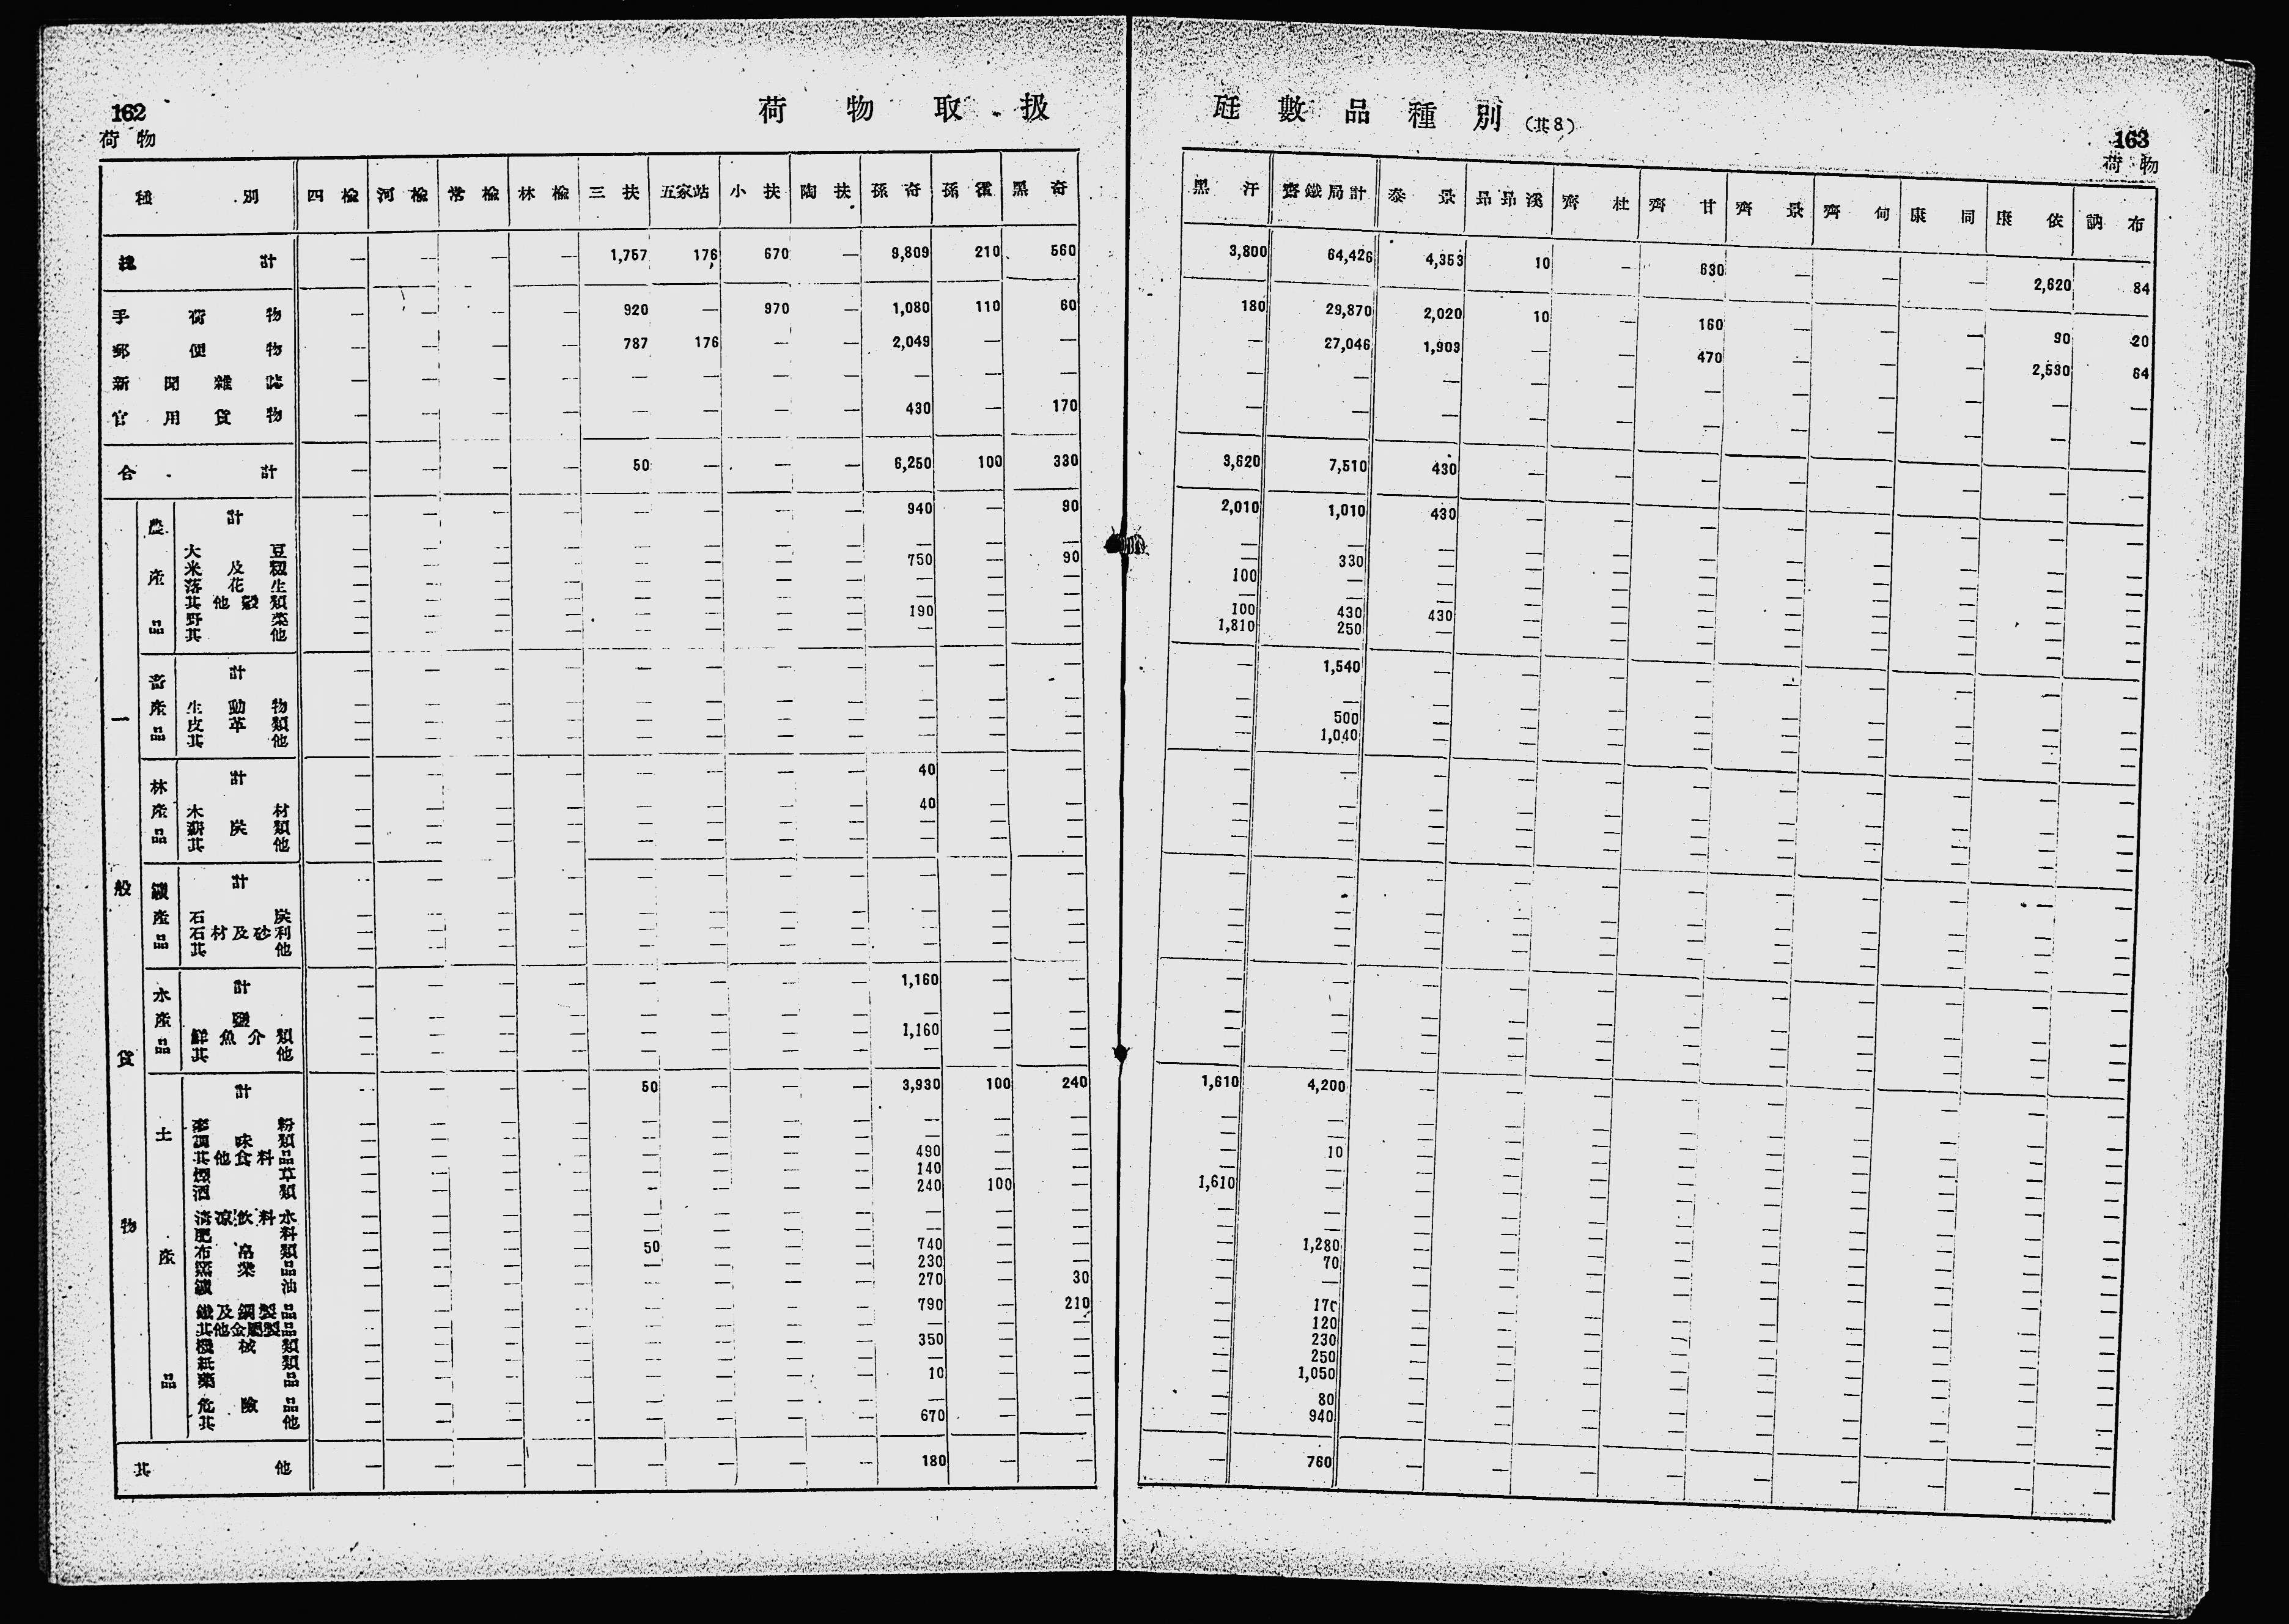 162
荷物
荷物取扱
種別 四楡 河楡 常楡 林楡 三扶 五家站 小扶 陶扶 孫奇 孫霍 黑奇
總計 — — — — 1,757 176 670 — 9,809 210 560
手荷物 — — — — 920 — 970 — 1,080 110 60
郵便物 — — — — 787 176 — — 2,049 — —
新聞雜誌 — — — — — — — — — — —
官用貨物 — — — — — — — — 430 — 170
合計 — — — — 50 — — — 6,250 100 330
一般貨物
農産品
計 — — — — — — — — 940 — 90
大豆 — — — — — — — — — — —
米及籾 — — — — — — — — 750 — 90
落花生 — — — — — — — — — — —
其他穀類 — — — — — — — — — — —
野菜 — — — — — — — — 190 — —
其他 — — — — — — — — — — —
畜産品
計 — — — — — — — — — — —
生動物 — — — — — — — — — — —
皮革類 — — — — — — — — — — —
其他 — — — — — — — — — — —
林産品
計 — — — — — — — — 40 — —
木材 — — — — — — — — 40 — —
薪炭類 — — — — — — — — — — —
其他 — — — — — — — — — — —
鑛産品
計 — — — — — — — — — — —
石炭 — — — — — — — — — — —
石材及砂利 — — — — — — — — — — —
其他 — — — — — — — — — — —
水産品
計 — — — — — — — — 1,160 — —
鹽 — — — — — — — — — — —
鮮魚介類 — — — — — — — — 1,160 — —
其他 — — — — — — — — — — —
土産品
計 — — — — 50 — — — 3,930 100 240
麥粉 — — — — — — — — — — —
調味類 — — — — — — — — — — —
其他食料品 — — — — — — — — 490 — —
煙草 — — — — — — — — 140 — —
酒類 — — — — — — — — 240 100 —
淸凉飮料水 — — — — — — — — — — —
肥料 — — — — — — — — — — —
布帛類 — — — — 50 — — — 740 — —
窯業品 — — — — — — — — 230 — —
鑛油 — — — — — — — — 270 — 30
鐵及鋼製品 — — — — — — — — 790 — 210
其他金屬製品 — — — — — — — — — — —
機械類 — — — — — — — — 350 — —
紙類 — — — — — — — — — — —
藥品 — — — — — — — — 10 — —
危險品 — — — — — — — — — — —
其他 — — — — — — — — 670 — —
其他 — — — — — — — — 180 — —
瓩數品種別(其8)
163
荷物
黑汗 齊鐵局計 泰景 昂昂溪 齊杜 齊甘 齊景 齊訥 康同 康依 訥布
3,800 64,426 4,353 10 — 630 — — — 2,620 84
180 29,870 2,020 10 — 160 — — — 90 20
— 27,046 1,903 — — 470 — — — 2,530 64
— — — — — — — — — — —
— — — — — — — — — — —
3,620 7,510 430 — — — — — — — —
2,010 1,010 430 — — — — — — — —
— — — — — — — — — — —
— 330 — — — — — — — — —
100 — — — — — — — — — —
— — — — — — — — — — —
100 430 430 — — — — — — — —
1,810 250 — — — — — — — — —
— 1,540 — — — — — — — — —
— — — — — — — — — — —
— 500 — — — — — — — — —
— 1,040 — — — — — — — — —
— — — — — — — — — — —
— — — — — — — — — — —
— — — — — — — — — — —
— — — — — — — — — — —
— — — — — — — — — — —
— — — — — — — — — — —
— — — — — — — — — — —
— — — — — — — — — — —
— — — — — — — — — — —
— — — — — — — — — — —
— — — — — — — — — — —
— — — — — — — — — — —
1,610 4,200 — — — — — — — — —
— — — — — — — — — — —
— — — — — — — — — — —
— 10 — — — — — — — — —
— — — — — — — — — — —
1,610 — — — — — — — — — —
— — — — — — — — — — —
— — — — — — — — — — —
— 1,280 — — — — — — — — —
— 70 — — — — — — — — —
— — — — — — — — — — —
— 170 — — — — — — — — —
— 120 — — — — — — — — —
— 230 — — — — — — — — —
— 250 — — — — — — — — —
— 1,050 — — — — — — — — —
— 80 — — — — — — — — —
— 940 — — — — — — — — —
— 760 — — — — — — — — —